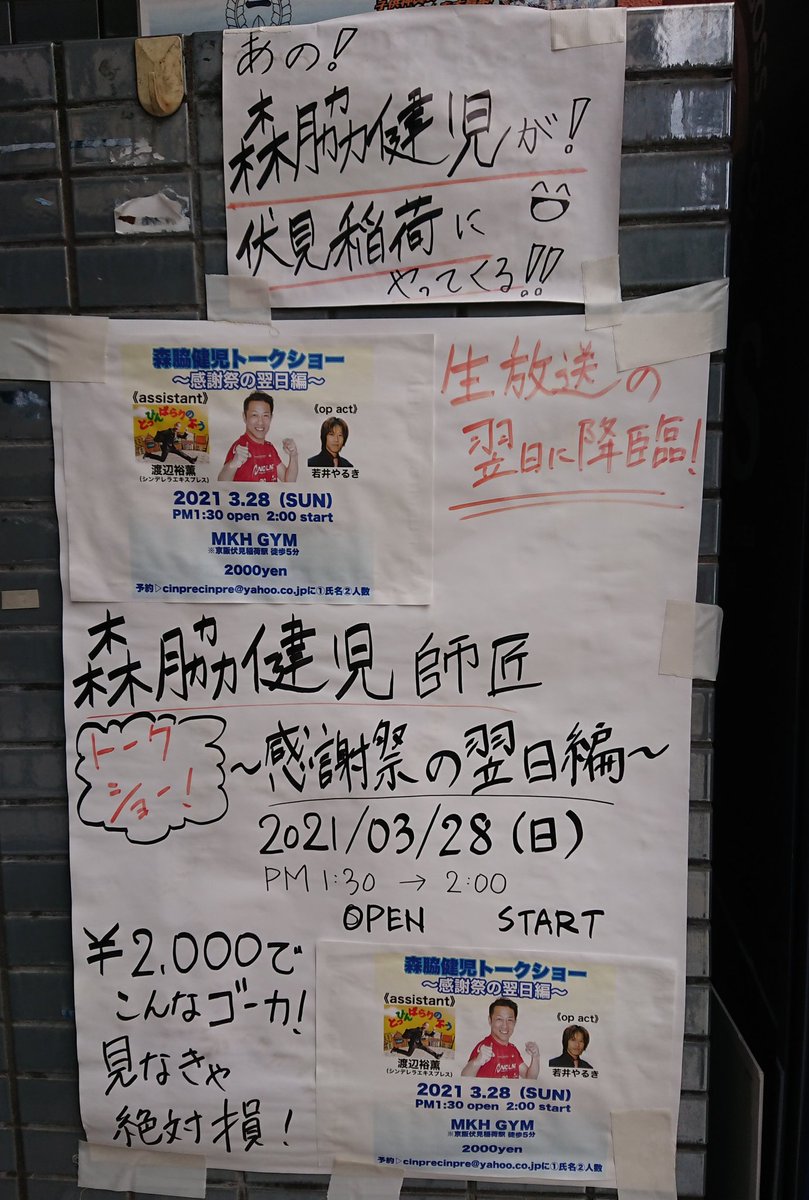 あの!
森脇健児が!
伏見稲荷に
やってくる!!
森脇健児トークショー
〜感謝祭の翌日編〜
《assistant》
《op act》
とっぴんぱらりのぷう
渡辺裕薫
(シンデレラエキスプレス)
若井やるき
2021 3.28 (SUN)
PM1:30 open 2:00 start
MKH GYM
※京阪伏見稲荷駅 徒歩5分
2000yen
予約▷cinprecinpre@yahoo.co.jpに①氏名②人数
生放送の
翌日に降臨!
森脇健児 師匠
トーク
ショー!
〜感謝祭の翌日編〜
2021/03/28(日)
PM 1:30 → 2:00
OPEN START
¥2,000で
こんなゴーカ!
見なきゃ
絶対損!
森脇健児トークショー
〜感謝祭の翌日編〜
《assistant》
《op act》
とっぴんぱらりのぷう
渡辺裕薫
(シンデレラエキスプレス)
若井やるき
2021 3.28 (SUN)
PM1:30 open 2:00 start
MKH GYM
※京阪伏見稲荷駅 徒歩5分
2000yen
予約▷cinprecinpre@yahoo.co.jpに①氏名②人数